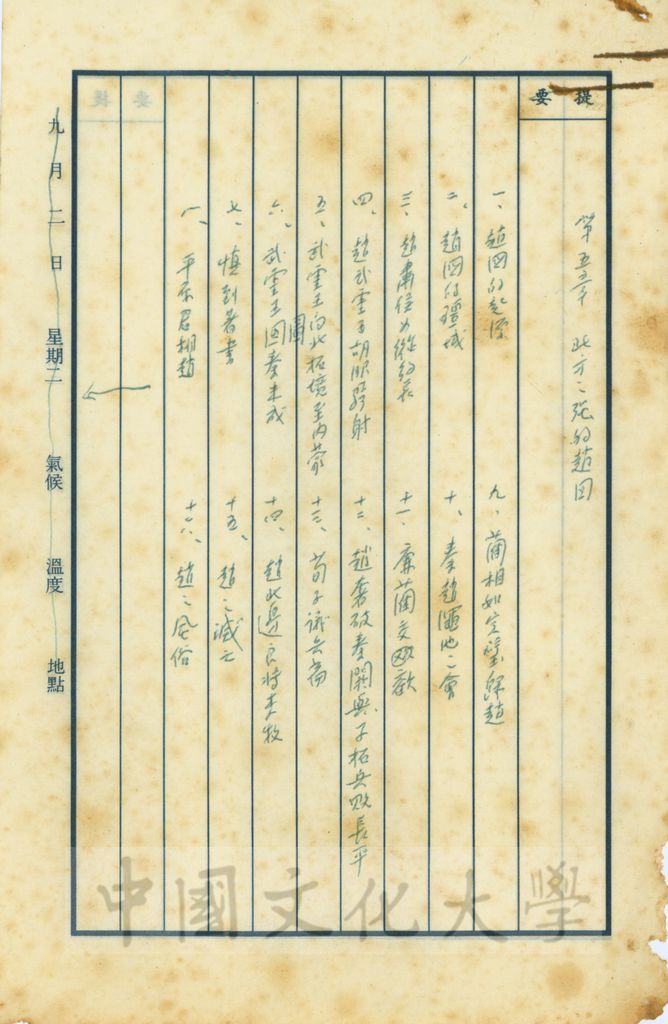 提要
第五章 北方之強的趙國
一、趙國的起源
二、趙國的疆域
三、趙肅侯為縱約長
四、趙武靈王胡服騎射
五、武靈王向北拓境至內蒙
六、武靈王圖秦未成
七、慎到著書
八、平原君相趙
九、藺相如完璧歸趙
十、秦趙澠池之會
十一、廉藺交歡
十二、趙奢破秦閼與子括兵敗長平
十三、荀子議兵篇
十四、趙北邊良將李牧
十五、趙之滅亡
十六、趙之風俗
九月二日 星期二 氣候 溫度 地點
中國文化大學